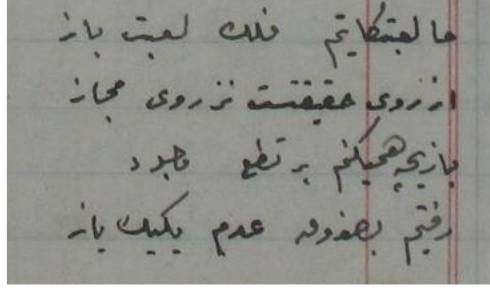 ما لعبتکانیم فلک لعبت باز
از روی حقیقتست نز روی مجاز
بازیچه همیکنم بر نطع وجود
رفتیم بصندوق عدم یکیک باز